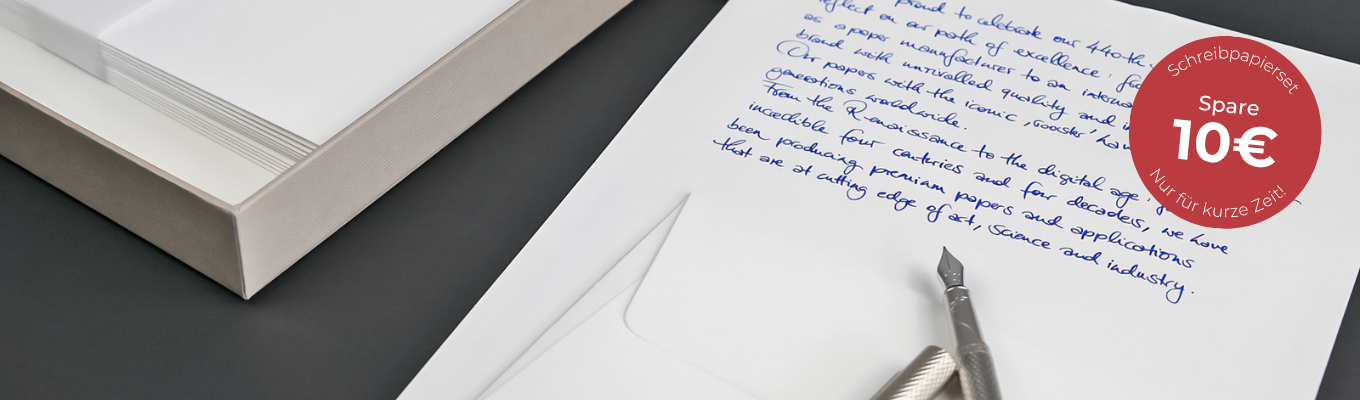 proud to celebrate our 440th
reflect on our path of excellence: fr
as a paper manufacturer to an interna
brand with unrivalled quality and i
Our papers with the iconic 'rooster' hav
generations worldwide.
From the Renaissance to the digital age:
incredible four centuries and four decades, we have
been producing premium papers and applications
that are at cutting edge of art, science and industry.
Schreibpapierset
Spare
10€
Nur für kurze Zeit!